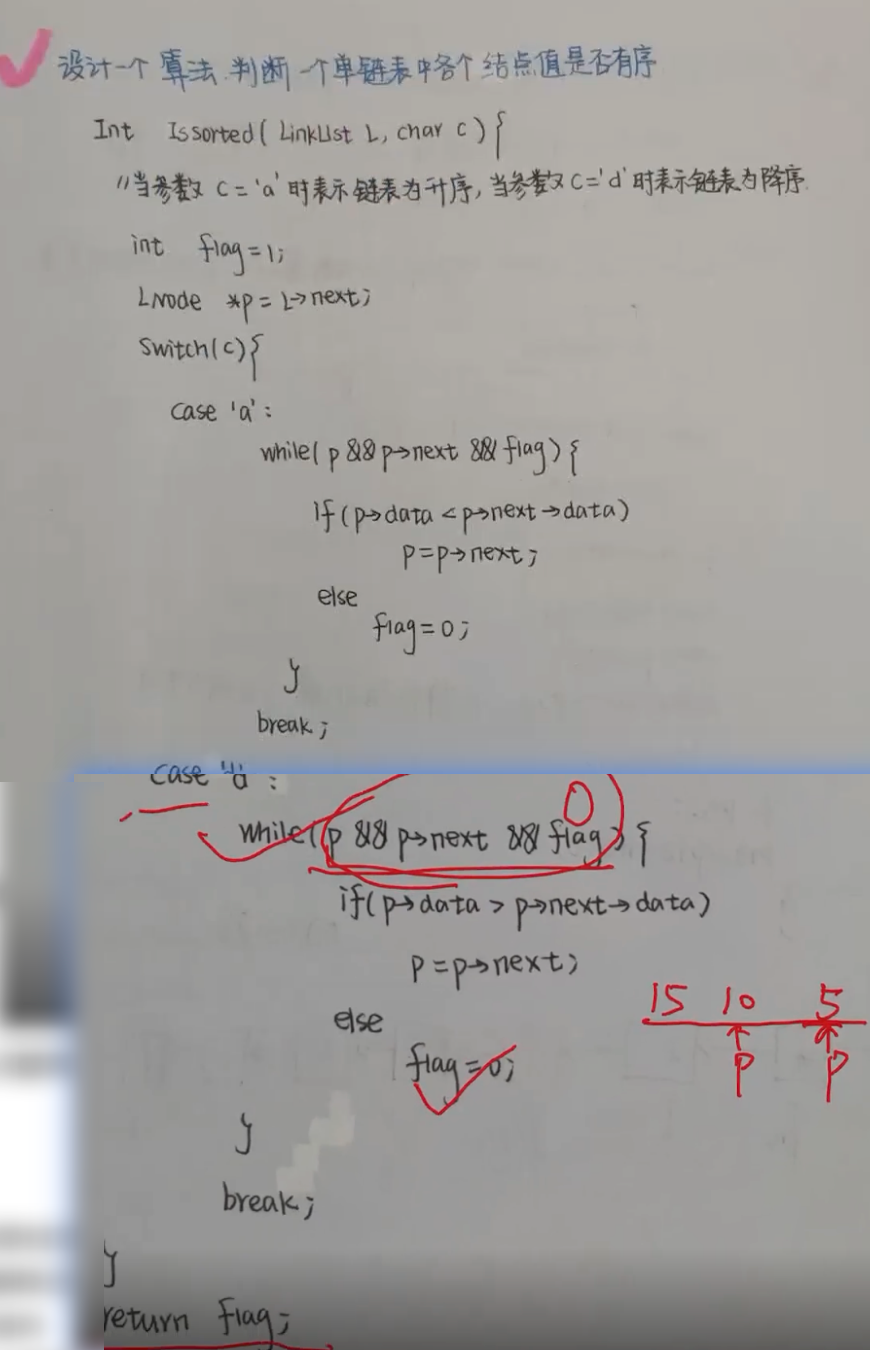 设计一个算法.判断一个单链表中各个结点值是否有序
Int Issorted(LinkList L, char c){
//当参数c='a'时表示链表为升序,当参数c='d'时表示链表为降序.
int flag=1;
LNode *p=L->next;
Switch(c){
case 'a':
while(p && p->next && flag){
if(p->data < p->next->data)
p=p->next;
else
flag=0;
}
break;
case 'd':
0
while(p && p->next && flag){
if(p->data > p->next->data)
p=p->next;
15 10 5
else
flag=0;
p p
}
break;
}
return flag;